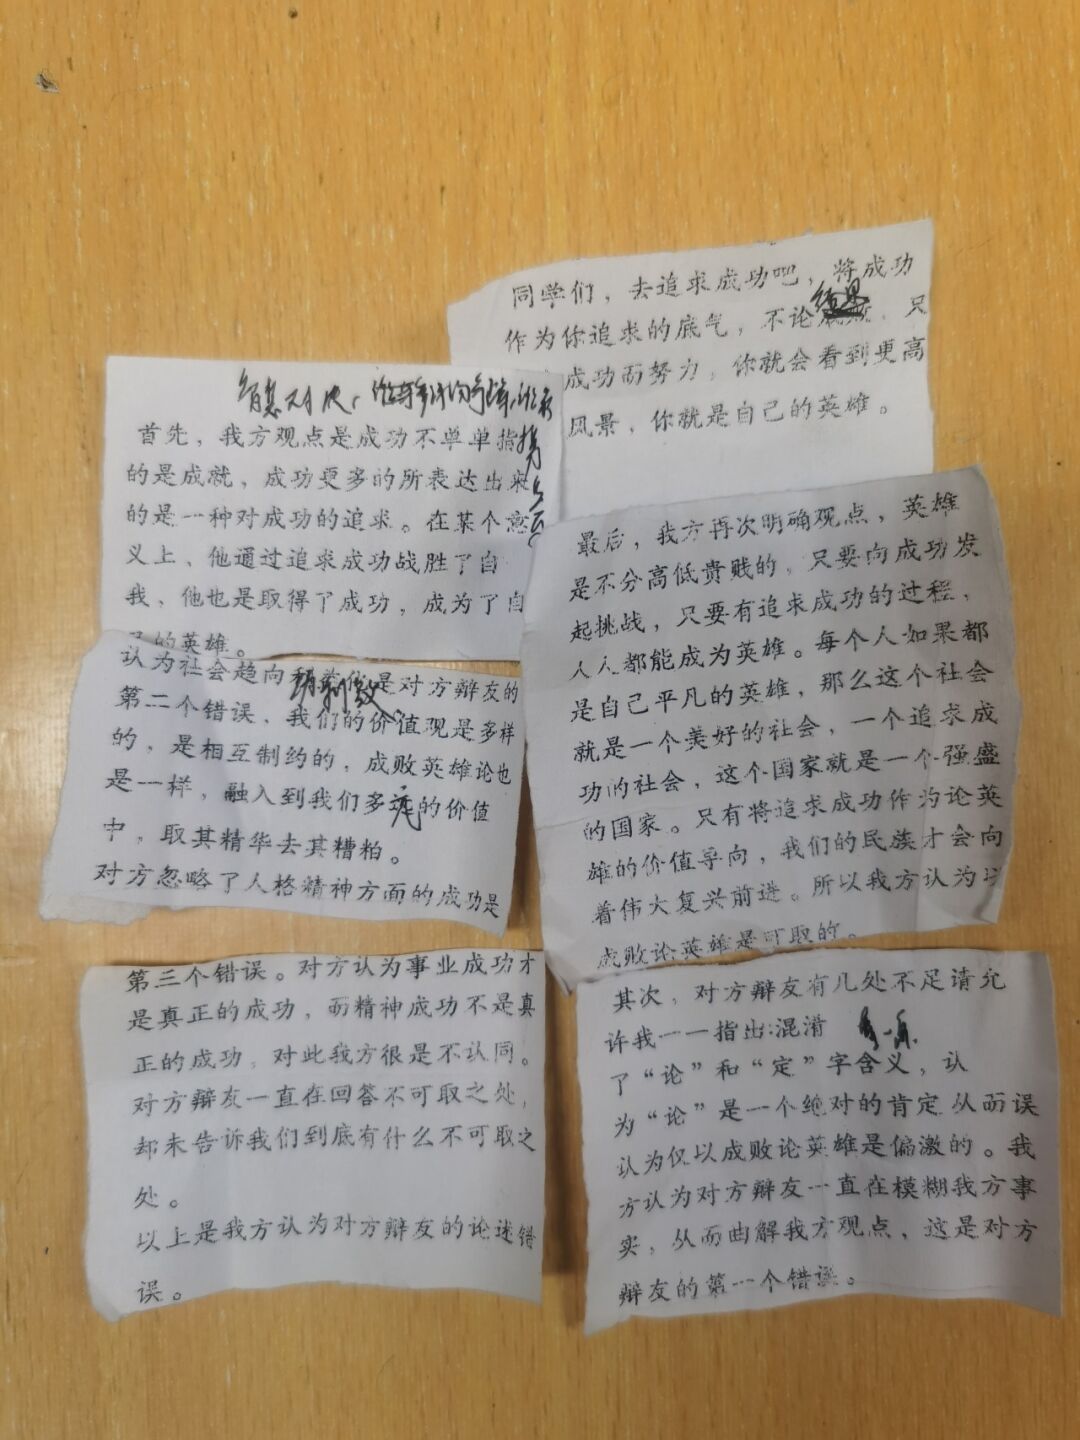 首先，我方观点是成功不单单指
的是成就，成功更多的所表达出来
的是一种对成功的追求。在某个意
义上，他通过追求成功战胜了自
我，他也是取得了成功，成为了自
的英雄。
其次，对方辩友有几处不足请允
许我一一指出:混淆
了“论”和“定”字含义，认
为“论”是一个绝对的肯定从而误
认为仅以成败论英雄是偏激的。我
方认为对方辩友一直在模糊我方事
实，从而曲解我方观点，这是对方
辩友的第一个错误。
认为社会趋向是对方辩友的
第二个错误，我们的价值观是多样
的，是相互制约的，成败英雄论也
是一样，融入到我们多元的价值
中，取其精华去其糟粕。
对方忽略了人格精神方面的成功是
第三个错误。对方认为事业成功才
是真正的成功，而精神成功不是真
正的成功，对此我方很是不认同。
对方辩友一直在回答不可取之处，
却未告诉我们到底有什么不可取之
处。
以上是我方认为对方辩友的论述错
误。
最后，我方再次明确观点，英雄
是不分高低贵贱的，只要向成功发
起挑战，只要有追求成功的过程，
人人都能成为英雄。每个人如果都
是自己平凡的英雄，那么这个社会
就是一个美好的社会，一个追求成
功的社会，这个国家就是一个强盛
的国家。只有将追求成功作为论英
雄的价值导向，我们的民族才会向
着伟大复兴前进。所以我方认为以
成败论英雄是可取的。
同学们，去追求成功吧，将成功
作为你追求的底气，不论结果，只
成功而努力，你就会看到更高
风景，你就是自己的英雄。